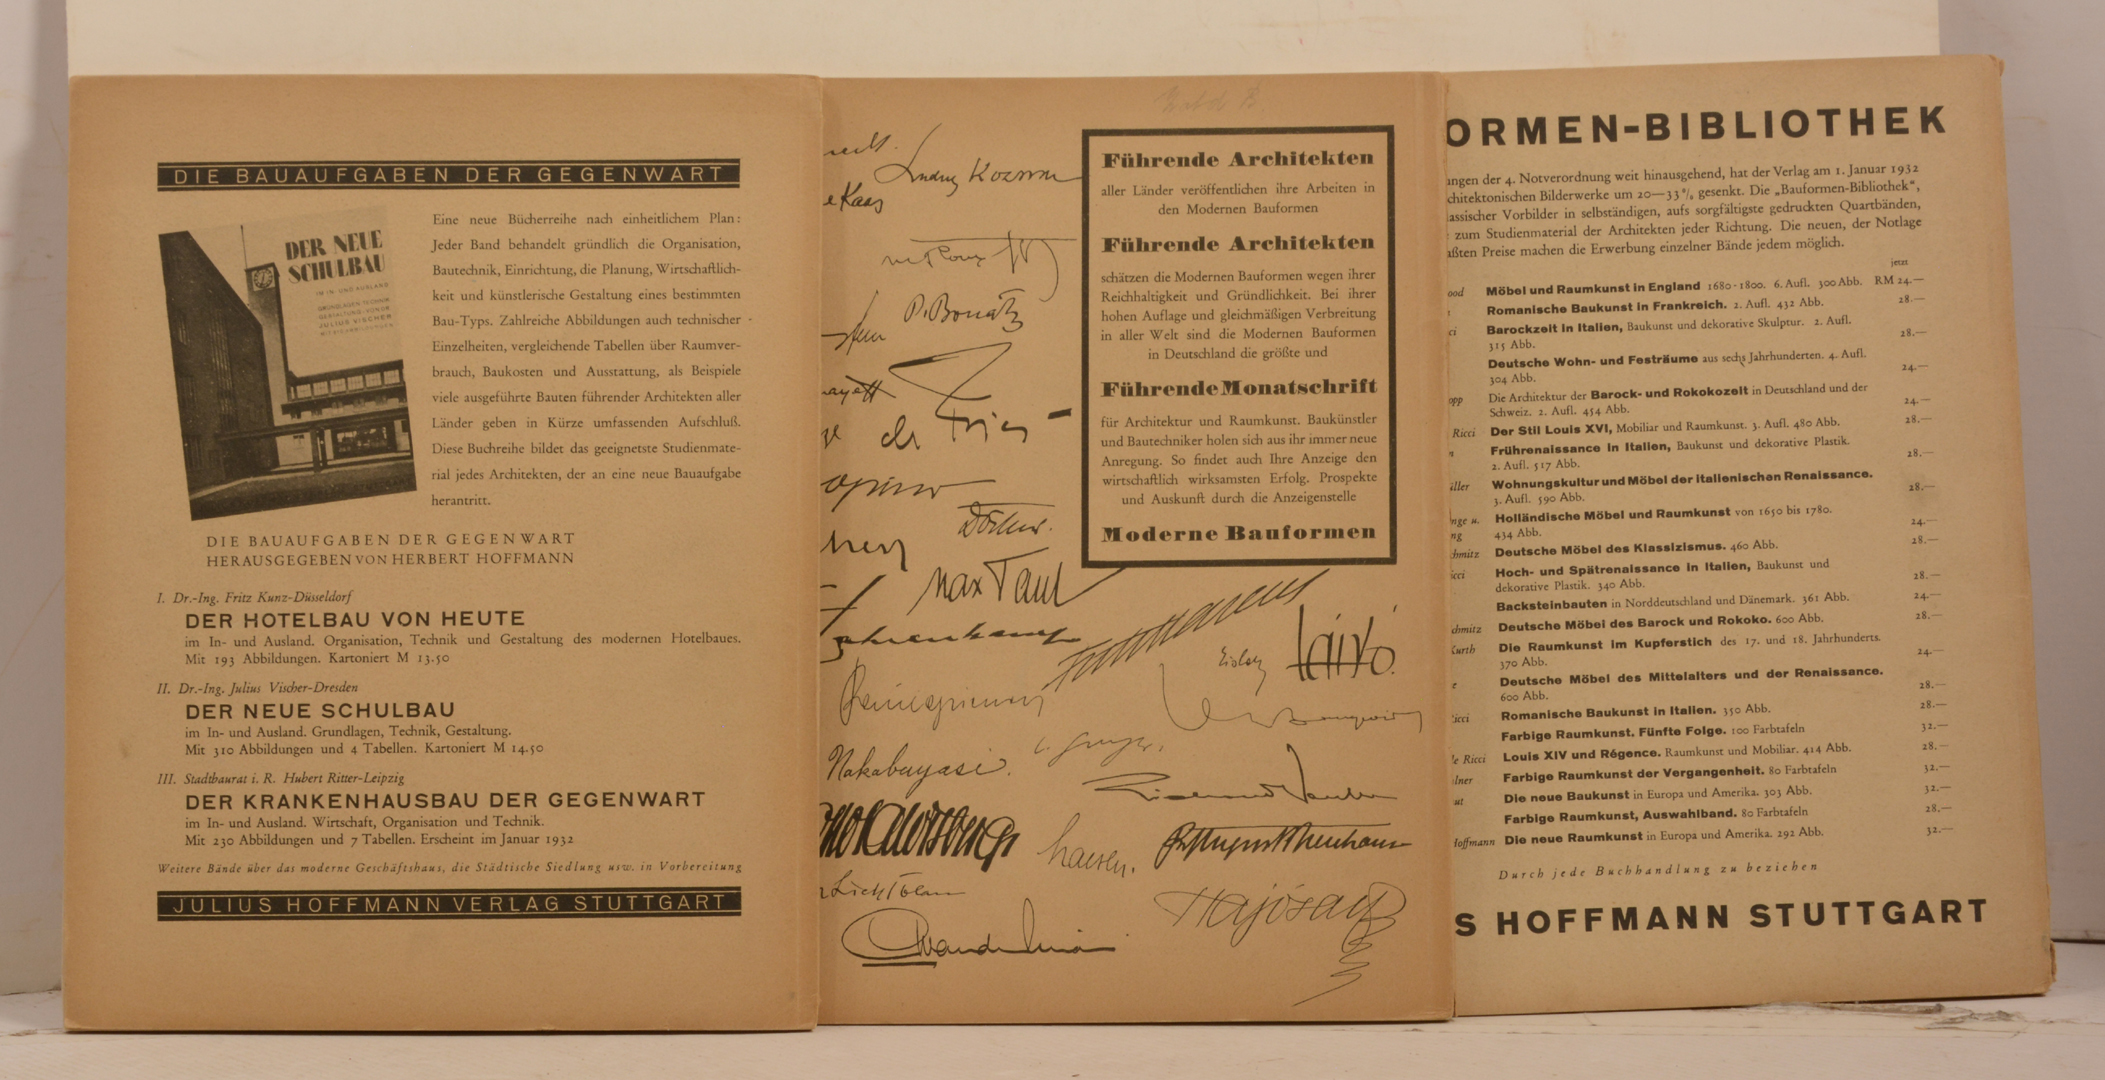 DIE BAUAUFGABEN DER GEGENWART
DER NEUE
SCHULBAU
IM IN- UND AUSLAND
GRUNDLAGEN TECHNIK
GESTALTUNG VON DR.
JULIUS VISCHER
Eine neue Bücherreihe nach einheitlichem Plan:
Jeder Band behandelt gründlich die Organisation,
Bautechnik, Einrichtung, die Planung, Wirtschaftlich-
keit und künstlerische Gestaltung eines bestimmten
Bau-Typs. Zahlreiche Abbildungen auch technischer
Einzelheiten, vergleichende Tabellen über Raumver-
brauch, Baukosten und Ausstattung, als Beispiele
viele ausgeführte Bauten führender Architekten aller
Länder geben in Kürze umfassenden Aufschluß.
Diese Buchreihe bildet das geeignetste Studienmate-
rial jedes Architekten, der an eine neue Bauaufgabe
herantritt.
DIE BAUAUFGABEN DER GEGENWART
HERAUSGEGEBEN VON HERBERT HOFFMANN
I. Dr.-Ing. Fritz Kunz-Düsseldorf
DER HOTELBAU VON HEUTE
im In- und Ausland. Organisation, Technik und Gestaltung des modernen Hotelbaues.
Mit 193 Abbildungen. Kartoniert M 13.50
II. Dr.-Ing. Julius Vischer-Dresden
DER NEUE SCHULBAU
im In- und Ausland. Grundlagen, Technik, Gestaltung.
Mit 310 Abbildungen und 4 Tabellen. Kartoniert M 14.50
III. Stadtbaurat i. R. Hubert Ritter-Leipzig
DER KRANKENHAUSBAU DER GEGENWART
im In- und Ausland. Wirtschaft, Organisation und Technik.
Mit 230 Abbildungen und 7 Tabellen. Erscheint im Januar 1932
Weitere Bände über das moderne Geschäftshaus, die Städtische Siedlung usw. in Vorbereitung
JULIUS HOFFMANN VERLAG STUTTGART
Kozma
e Kaas
P. Bonatz
de Fries
Döcker.
Max Taut
Fahrenkamp
Laivó
Nakabayasi.
haesler.
Führende Architekten
aller Länder veröffentlichen ihre Arbeiten in
den Modernen Bauformen
Führende Architekten
schätzen die Modernen Bauformen wegen ihrer
Reichhaltigkeit und Gründlichkeit. Bei ihrer
hohen Auflage und gleichmäßigen Verbreitung
in aller Welt sind die Modernen Bauformen
in Deutschland die größte und
Führende Monatschrift
für Architektur und Raumkunst. Baukünstler
und Bautechniker holen sich aus ihr immer neue
Anregung. So findet auch Ihre Anzeige den
wirtschaftlich wirksamsten Erfolg. Prospekte
und Auskunft durch die Anzeigenstelle
Moderne Bauformen
ORMEN-BIBLIOTHEK
ngen der 4. Notverordnung weit hinausgehend, hat der Verlag am 1. Januar 1932
chitektonischen Bilderwerke um 20—33% gesenkt. Die „Bauformen-Bibliothek“,
assischer Vorbilder in selbständigen, aufs sorgfältigste gedruckten Quartbänden,
zum Studienmaterial der Architekten jeder Richtung. Die neuen, der Notlage
aßten Preise machen die Erwerbung einzelner Bände jedem möglich.
jetzt
ood Möbel und Raumkunst in England 1680-1800. 6. Aufl. 300 Abb. RM 24.—
Romanische Baukunst in Frankreich. 2. Aufl. 432 Abb. 28.—
ci Barockzeit in Italien, Baukunst und dekorative Skulptur. 2. Aufl.
315 Abb. 28.—
Deutsche Wohn- und Festräume aus sechs Jahrhunderten. 4. Aufl.
304 Abb. 24.—
opp Die Architektur der Barock- und Rokokozeit in Deutschland und der
Schweiz. 2. Aufl. 454 Abb. 24.—
Ricci Der Stil Louis XVI, Mobiliar und Raumkunst. 3. Aufl. 480 Abb. 28.—
Frührenaissance in Italien, Baukunst und dekorative Plastik.
2. Aufl. 517 Abb. 28.—
üller Wohnungskultur und Möbel der Italienischen Renaissance.
3. Aufl. 590 Abb. 28.—
nge u. Holländische Möbel und Raumkunst von 1650 bis 1780.
ng 434 Abb. 24.—
hmitz Deutsche Möbel des Klassizismus. 460 Abb. 28.—
icci Hoch- und Spätrenaissance in Italien, Baukunst und
dekorative Plastik. 340 Abb. 28.—
Backsteinbauten in Norddeutschland und Dänemark. 361 Abb. 24.—
chmitz Deutsche Möbel des Barock und Rokoko. 600 Abb. 28.—
Kurth Die Raumkunst im Kupferstich des 17. und 18. Jahrhunderts.
370 Abb. 24.—
e Deutsche Möbel des Mittelalters und der Renaissance.
600 Abb. 28.—
icci Romanische Baukunst in Italien. 350 Abb. 28.—
Farbige Raumkunst. Fünfte Folge. 100 Farbtafeln 32.—
le Ricci Louis XIV und Régence. Raumkunst und Mobiliar. 414 Abb. 28.—
lner Farbige Raumkunst der Vergangenheit. 80 Farbtafeln 32.—
ut Die neue Baukunst in Europa und Amerika. 303 Abb. 32.—
Farbige Raumkunst, Auswahlband. 80 Farbtafeln 28.—
Hoffmann Die neue Raumkunst in Europa und Amerika. 292 Abb. 32.—
Durch jede Buchhandlung zu beziehen
S HOFFMANN STUTTGART